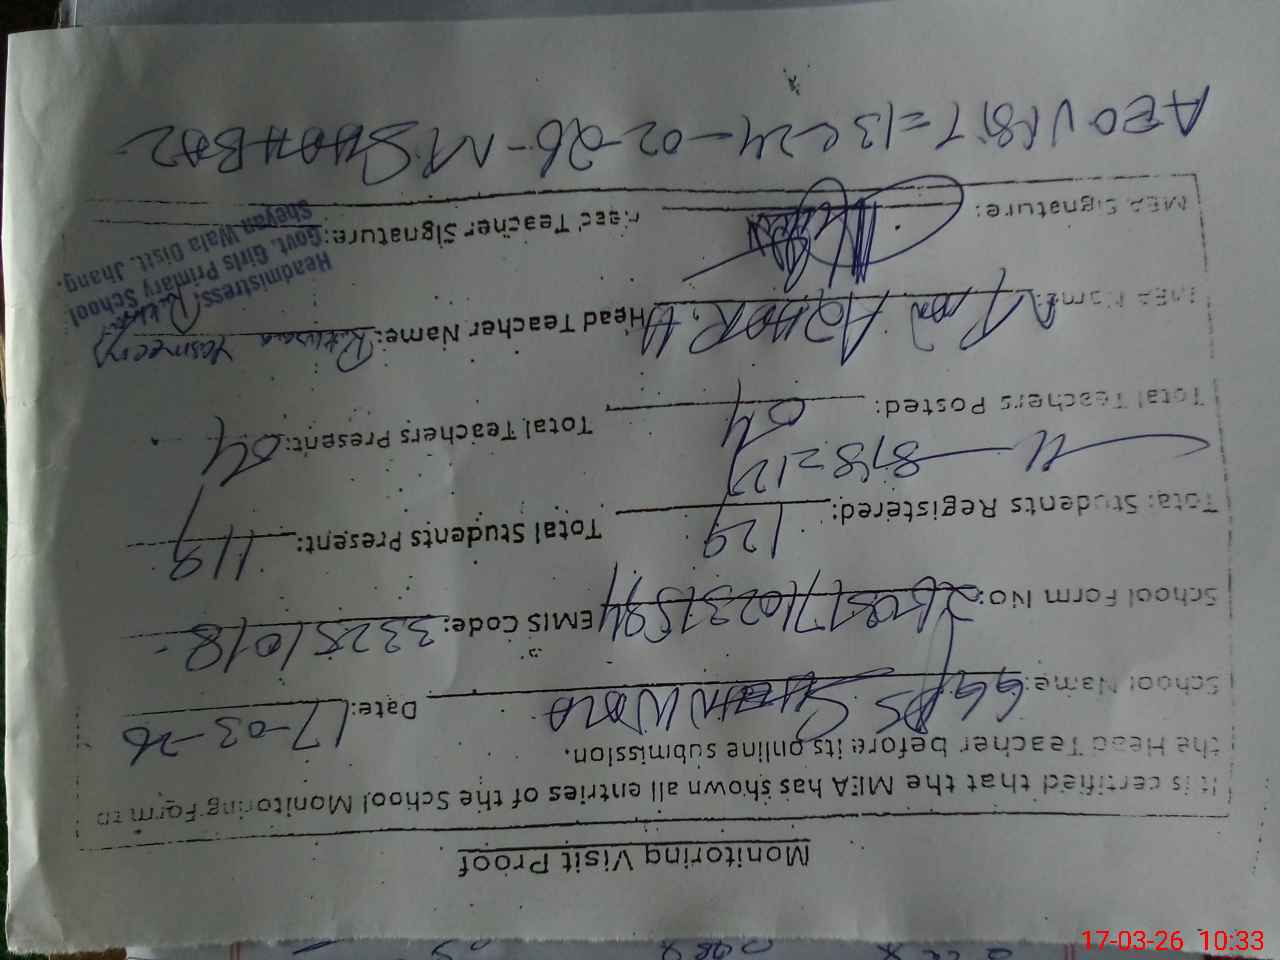 Monitoring Visit Proof
It is certified that the MEA has shown all entries of the School Monitoring Form to
the Head Teacher before its online submission.
School Name: GGPS Wala Date: 17-03-26
School Form No: EMIS Code: 33251018
Total Students Registered: 129 Total Students Present: 119
Total Teachers Posted: 04 Total Teachers Present: 04
MEA Name: Head Teacher Name: Rukhsana Yasmeen
MEA Signature: Head Teacher Signature:
Headmistress
Govt. Girls Primary School
Sheyan Wala Distt. Jhang.
AEO VISIT = 13 24-02-26 - M
17-03-26 10:33